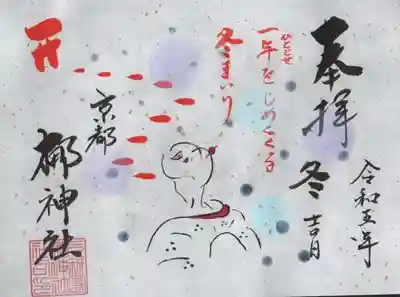 奉拝
冬 吉月
令和五年
一年をしめくくる
ひととせ
冬まいり
京都
梛神社